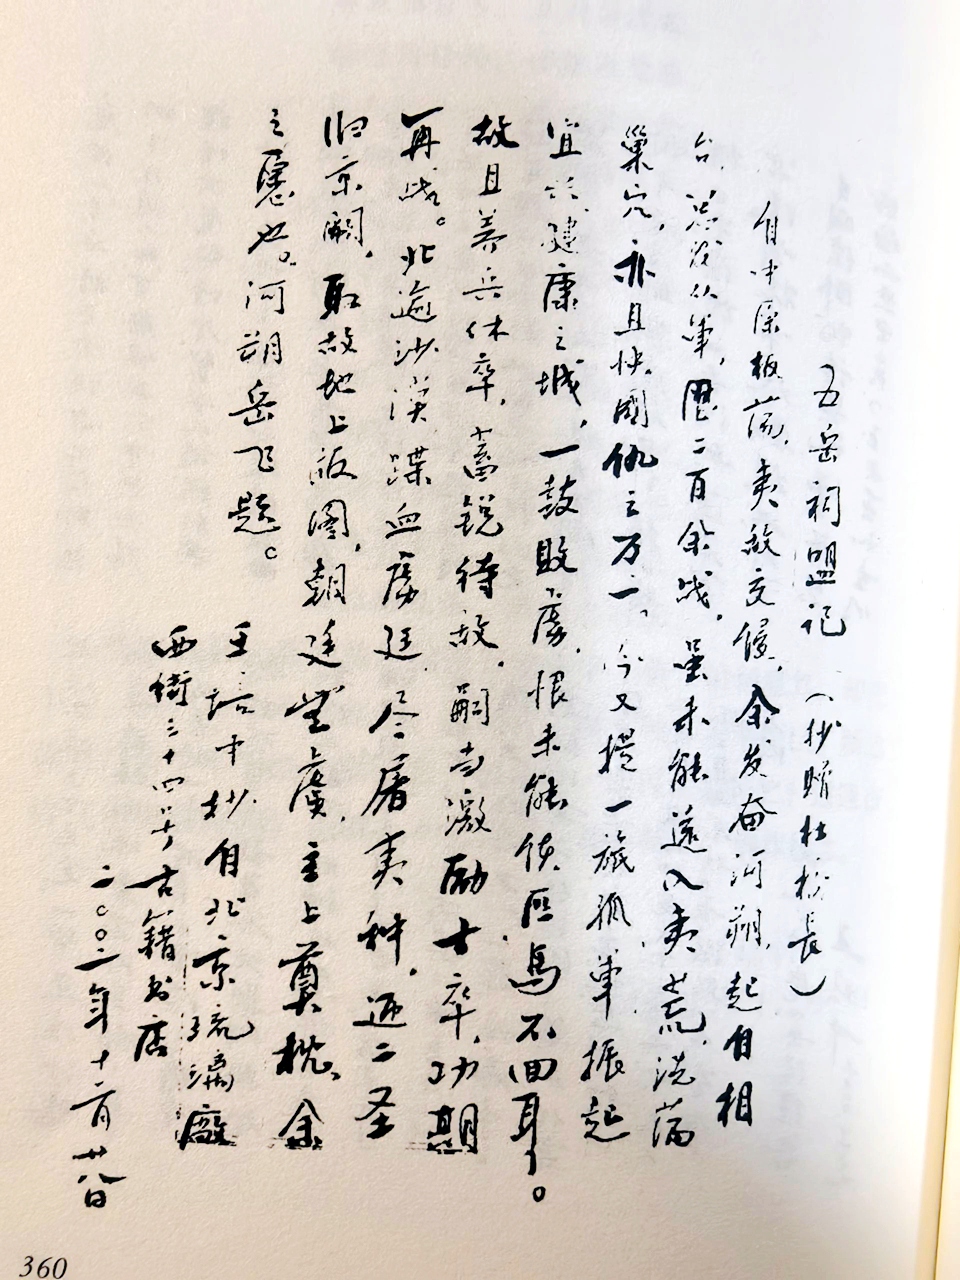 五岳祠盟记（抄赠杜校长）
自中原板荡，夷敌交侵，余发奋河朔，起自相
台，总发从军，歷二百余战，虽未能远入夷荒，洗荡
巢穴，亦且快國仇之万一，今又提一旅孤军振起
宜兴，建康之城，一鼓敗虏，恨未能使匹馬不回耳。
故且养兵休卒，蓄锐待敌，嗣当激励士卒，功期
再战。北逾沙漠，蹀血虏廷，尽屠夷种，迎二圣
归京阙，取故地上版图，朝廷無虞，主上奠枕，余
之愿也。河朔岳飞题。
王培中抄自北京琉漓廠
西街三十四号古籍书店
二〇〇二年十二月廿八日
360